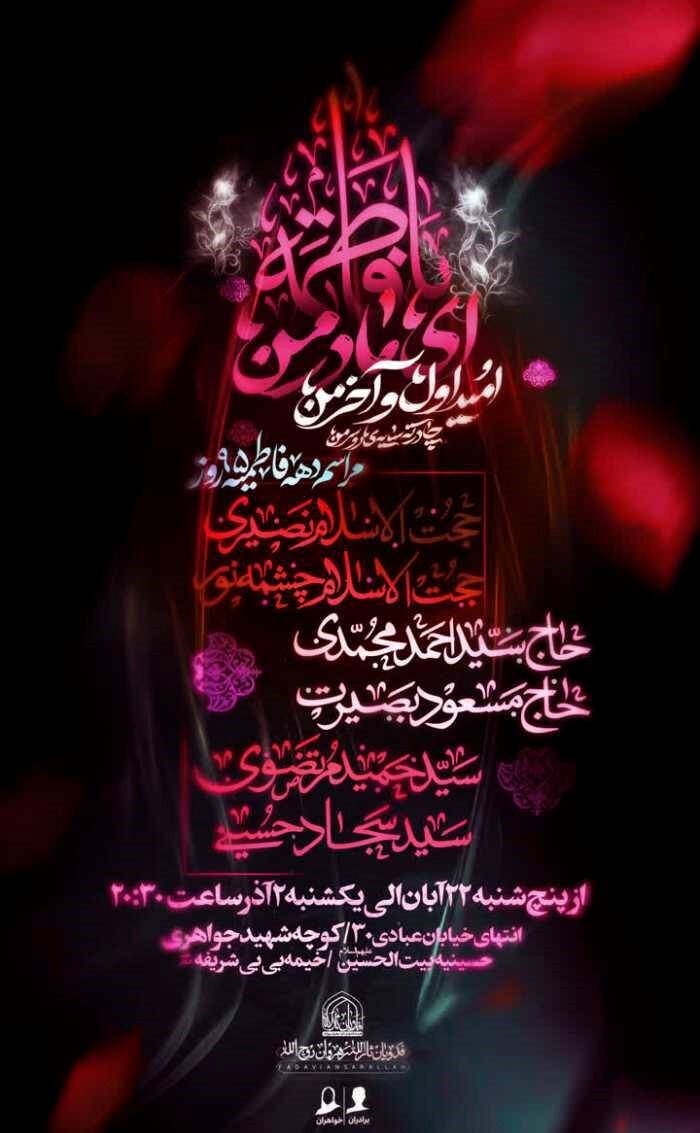 یا فاطمه
ای مادر من
امید اول و آخر من
چادرت سایه‌ی رو سر من
مراسم دهه فاطمیه ۹۵ روز
حجت الاسلام نصیری
حجت الاسلام چشمه نور
حاج سید احمد محمدی
حاج مسعود بصیرت
سید حمید مرتضوی
سید سجاد حسینی
از پنج شنبه ۲۲ آبان الی یکشنبه ۲ آذر ساعت ۲۰:۳۰
انتهای خیابان عبادی ۳۰/کوچه شهید جواهری
حسینیه بیت الحسین علیه‌السلام/خیمه بی بی شریفه
فدویان ثارالله رهروان روح الله
FADAVIANSARALLAH
برادران | خواهران